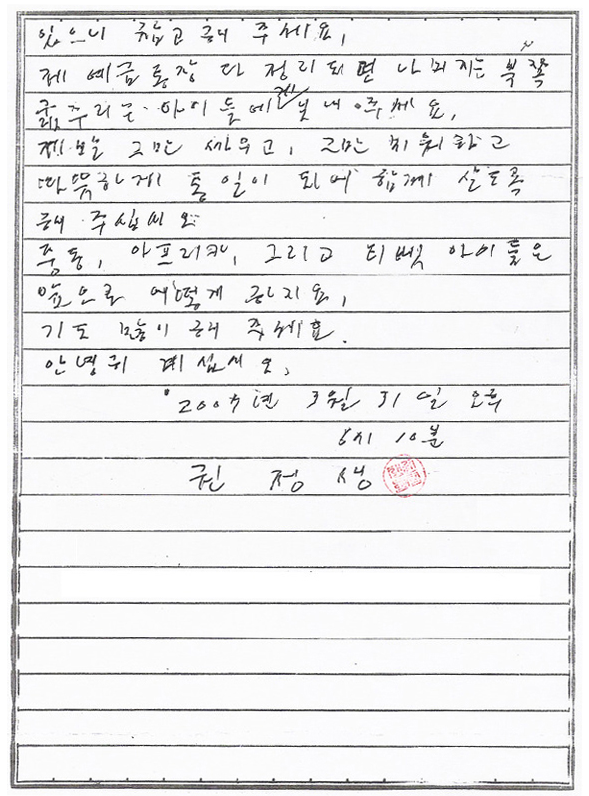 있으니 참고 해 주세요.
제 예금통장 다 정리되면 나머지는 북쪽
굶주리는 아이들에게 보내 주세요.
제발 그만 싸우고, 그만 미워하고
따뜻하게 통일이 되어 함께 살도록
해 주십시오.
중동, 아프리카, 그리고 티벳 아이들은
앞으로 어떻게 하지요.
기도 많이 해 주세요.
안녕히 계십시오.
2007년 3월 31일 오후
6시 10분
권정생